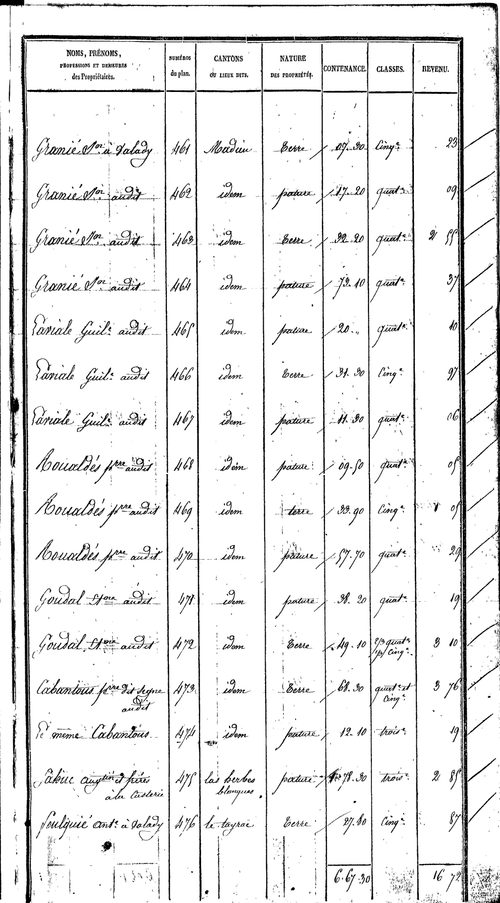 NOMS, PRÉNOMS, PROFESSIONS ET DEMEURES des Propriétaires. NUMÉROS du plan. CANTONS OU LIEUX DITS. NATURE DES PROPRIÉTÉS. CONTENANCE. CLASSES. REVENU.
Granié à Valady 461 Terre 07.30 Cinq. 23
Granié audit 462 idem pature 17.20 quat. 09
Granié audit 463 idem Terre 32.20 quat. 2 55
Granié audit 464 idem pature 73.10 quat. 37
Lariale Guil. audit 465 idem pature 20.„ quat. 10
Lariale Guil. audit 466 idem Terre 31.30 Cinq. 97
Lariale Guil. audit 467 idem pature 11.30 quat. 06
Roualdés pre audit 468 idem pature 09.50 quat. 05
Roualdés pre audit 469 idem terre 33.90 Cinq. 1 05
Roualdés pre audit 470 idem pature 57.70 quat. 29
Goudal audit 471 idem pature 38.20 quat. 19
Goudal audit 472 idem Terre 49.10 quat. Cinq. 3 10
Cabantous pre dit audit 473 idem Terre 68.30 quat. et Cinq. 3 76
Le même Cabantous 474 idem pature 12.10 trois. 19
et frères 475 las herbes blanques pature 78.30 trois. 2 85
Foulquié ant. à Valady 476 le tayrac Terre 27.30 Cinq. 87
6.67.30 16 72